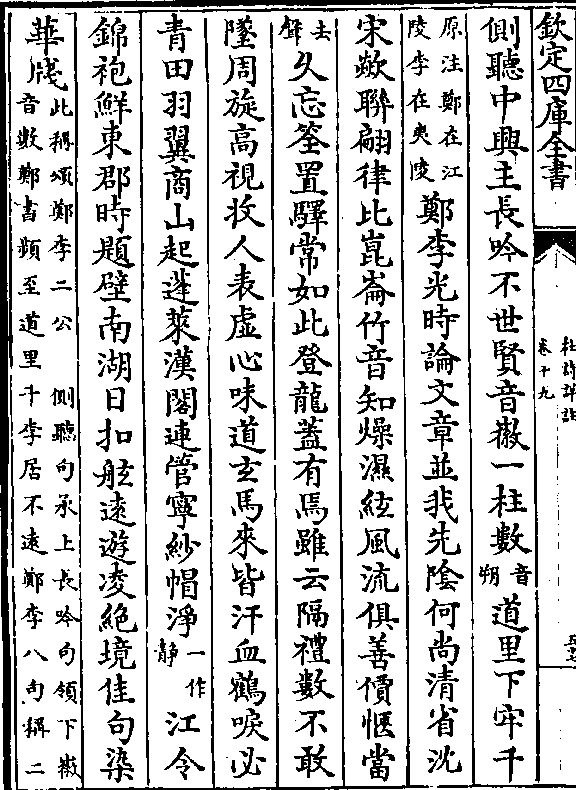 欽定四庫全書
杜詩詳註
卷十九
五十七
側聽中興主長吟不世賢音徽一柱數音朔道里下牢千
原注鄭在江陵李在夷陵鄭李光時論文章並我先陰何尚清省沈
宋欻聯翩律比崑崙竹音知燥濕絃風流俱善價愜當
去聲久忘筌置驛常如此登龍蓋有焉雖云隔禮數不敢
墜周旋高視收人表虛心味道玄馬來皆汗血鶴唳必
青田羽翼商山起蓬萊漢閣連管寧紗帽淨一作靜江令
錦袍鮮東郡時題壁南湖日扣舷遠遊凌絕境佳句染
華牋此稱頌鄭李二公 側聽句承上長吟句領下徽音數鄭書頻至道里千李居不遠鄭李八句稱二